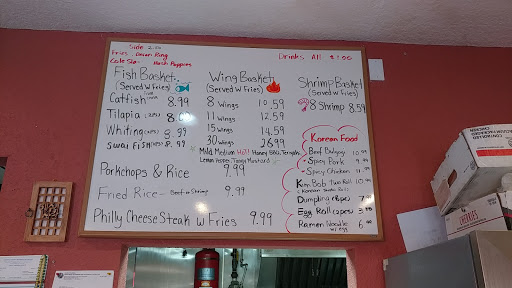 Side 2.50
Fries Onion Ring
Cole Slaw Hush Puppies
Drinks All $2.00
Fish Basket
(Served w Fries)
Catfish 8.99
Tilapia (2pcs) 8.99
Whiting (2pcs) 8.99
Swai Fish (2pcs) 8.99
Wing Basket
(Served w Fries)
8 Wings 10.59
11 Wings 12.59
15 Wings 14.59
30 Wings 26.99
Mild Medium Hot! Honey BBQ Teriyaki
Lemon Pepper Tangy Mustard
Shrimp Basket
(Served w Fries)
8 Shrimp 8.59
Porkchops & Rice 9.99
Fried Rice - Beef or Shrimp 9.99
Philly Cheese Steak w Fries 9.99
Korean Food
Beef Bulgogi 10.99
Spicy Pork 9.99
Spicy Chicken
Kim Bob Tuna Roll
Dumpling
Egg Roll
Ramen Noodle
w/ egg